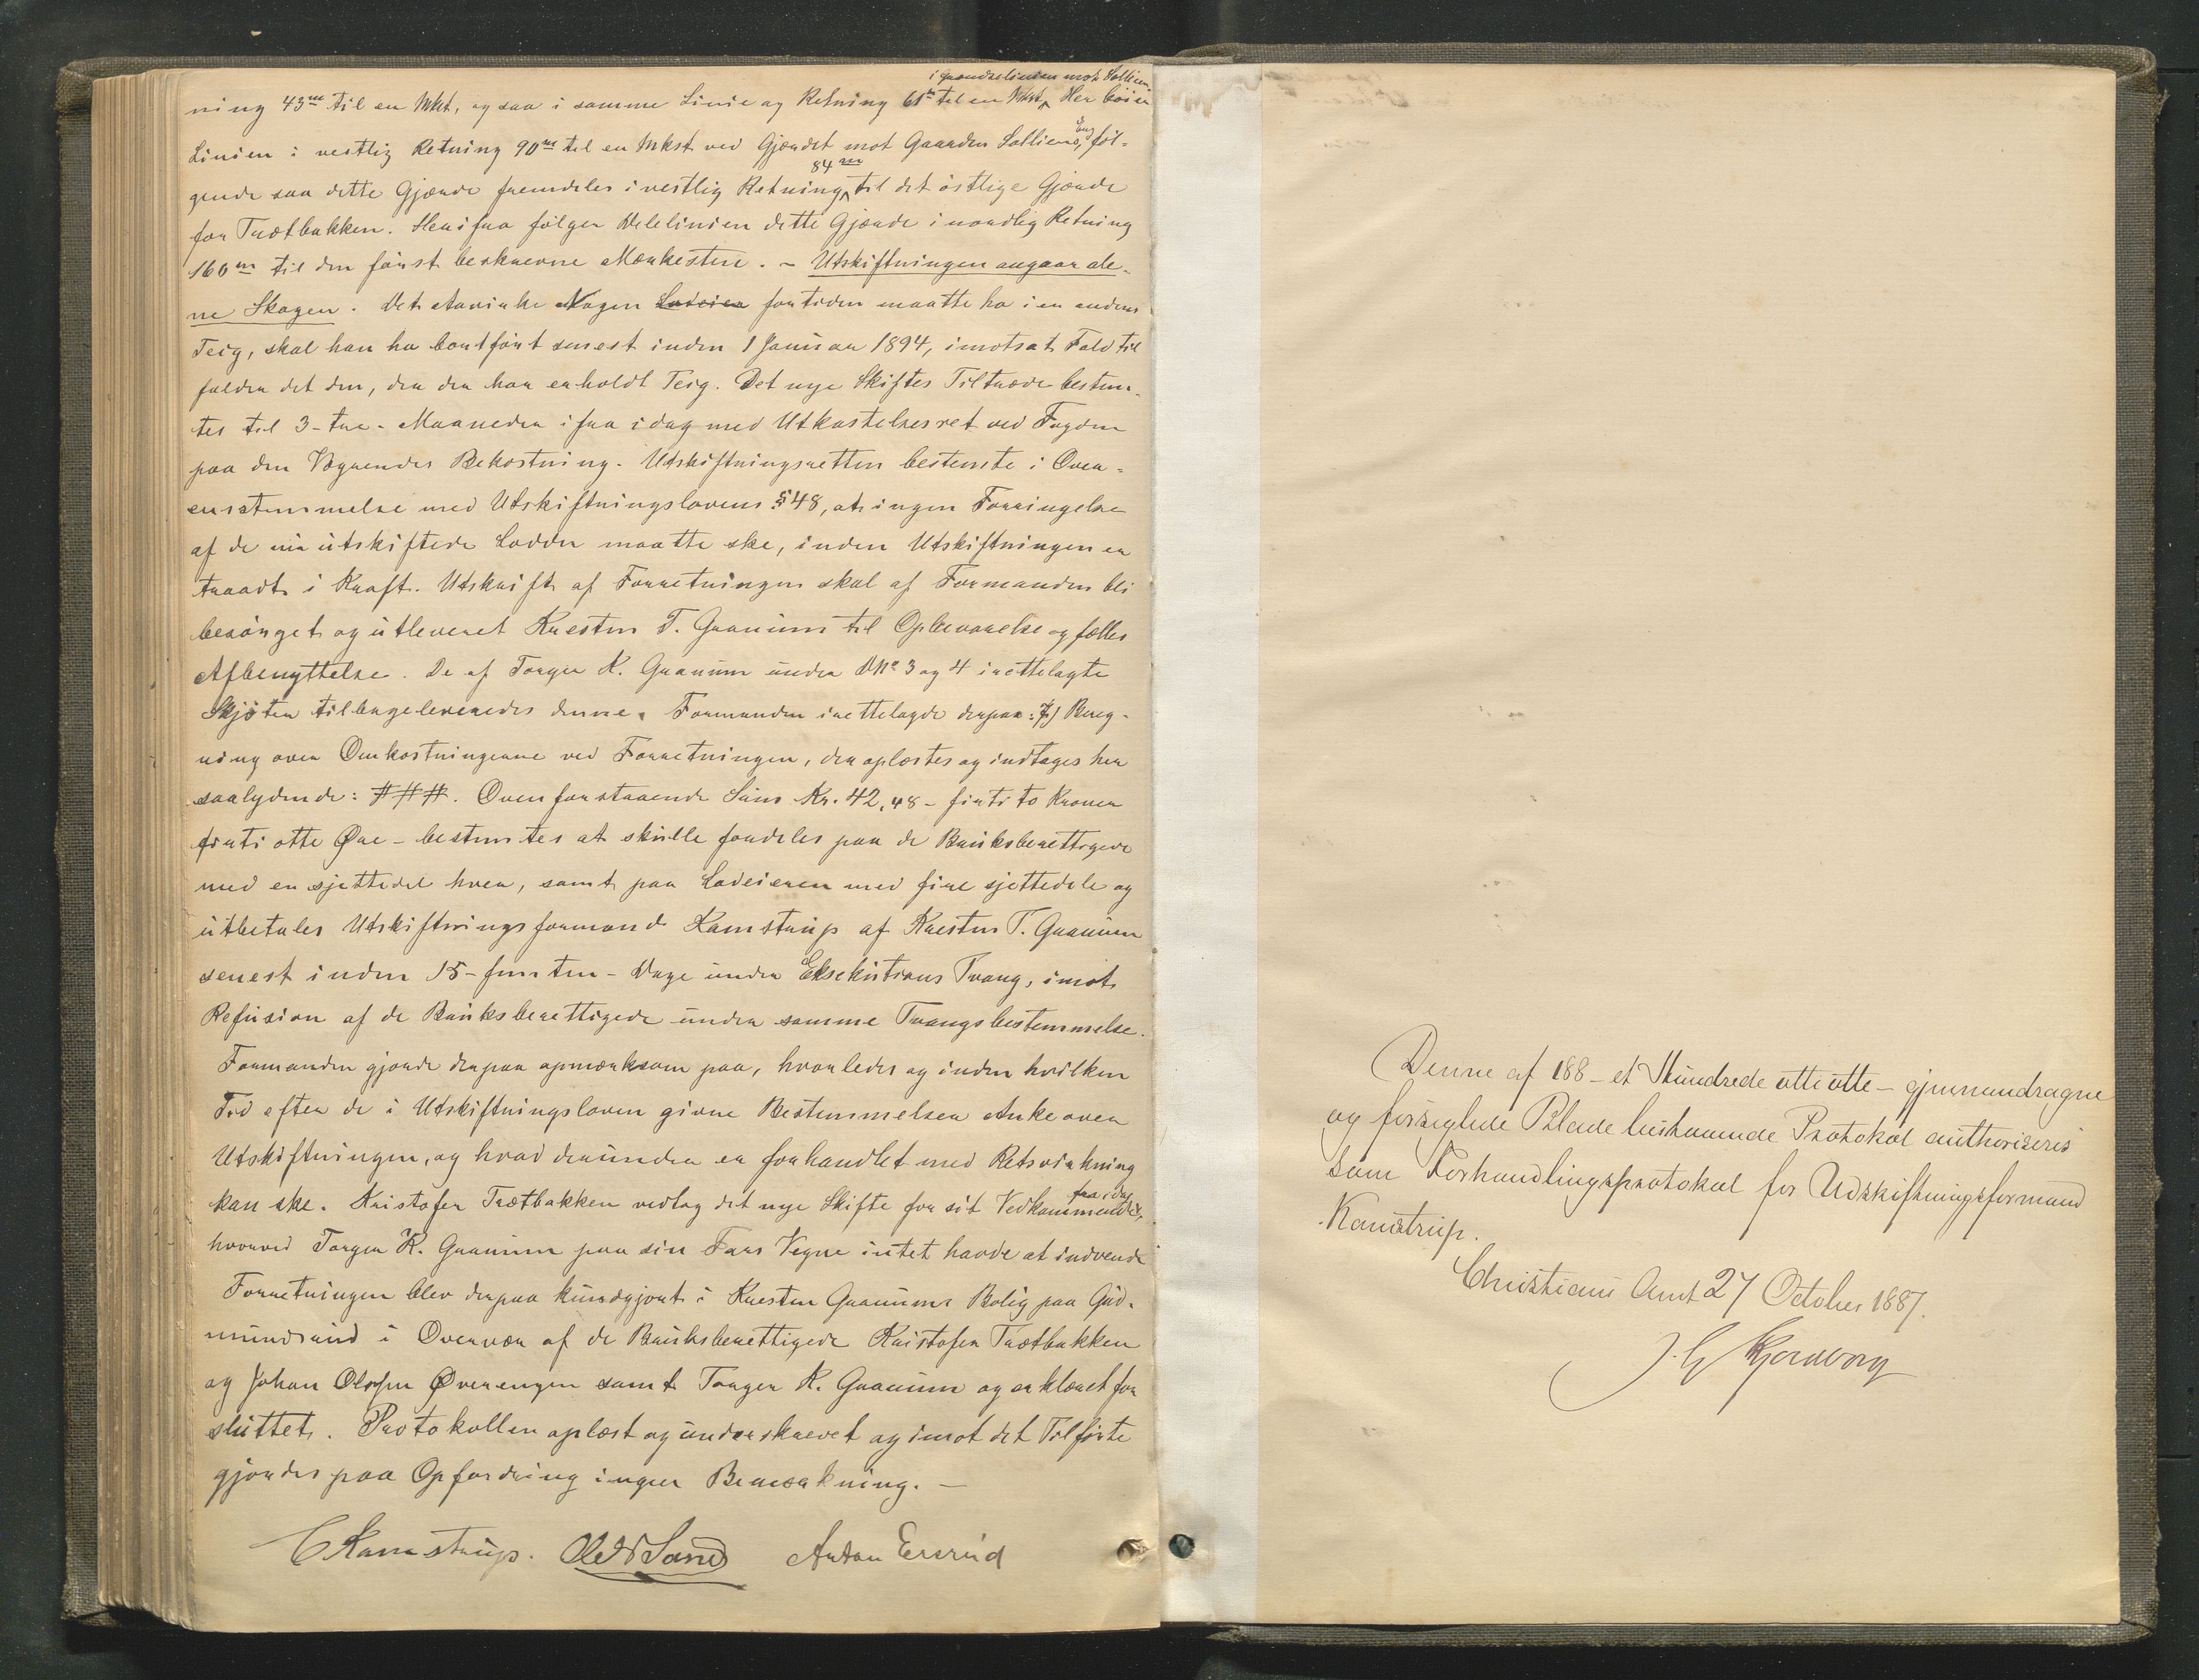 i Grændselinien mot Sollien.
ning 43m til en Mkst, og saa i samme Linie og Retning 61m til en Mkst, Her böier
Linien i vestlig Retning 90m til en Mkst ved Gjærdet mot Gaarden Solliens Eng, föl-
gende saa dette Gjærde fremdeles i vestlig Retning 84m til det östlige Gjærde
for Trætbakken. Herifra fölger Delelinien dette Gjærde i nordlig Retning
160m til den först beskrevne Merkesten. - Utskiftningen angaar ale-
ne Skogen. Det Avirke Nogen Lodeier for tiden maatte ha i en andens
Teig, skal han ha bortfört senest inden 1 Januar 1894, i motsat Fald til
falder det den, der der har erholdt Teig. Det nye Skiftes Tiltræde bestem-
tes til 3- tre- Maaneder ifra idag med Utkastelsesret ved Fogden
paa den Vægrendes Bekostning. Utskiftningsretten bestemte i Over-
ensstemmelse med Utskiftningslovens § 48, at ingen Forringelse
af de nu utskiftede Lodder maatte ske, inden Utskiftningen er
traadt i Kraft. Utskrift af Forretningen skal af Formanden bli
besörget og utleveret Kresten T. Granum til Opbevarelse og fælles
Afbenyttelse. De af Torger K. Granum under DNo 3 og 4 irettelagte
Skjöter tilbageleveredes denne. Formanden irettelagde derpaa: 7) Bereg-
ning over Omkostningerne ved Forretningen, der oplæstes og indtages her
saalydende: ###. Ovenforstaaende Sum Kr. 42,48 - firti to Kroner
firti otte Øre - bestemtes at skulle fordeles paa de Bruksberettigede
med en sjettedel hver, samt paa Lodeieren med fire sjettedele og
utbetales Utskiftningsformand Kamstrup af Kresten T. Granum
senest inden 15- femten- Dage under Eksekutions Tvang, imot
Refusion af de Bruksberettigede under samme Tvangsbestemmelse.
Formanden gjorde derpaa opmerksom paa, hvorledes og inden hvilken
Tid efter de i Utskiftningsloven givne Bestemmelser Anke over
Utskiftningen, og hvad derunder er forhandlet med Retsvirkning
kan ske. Kristofer Trætbakken vedtog det nye Skifte for sit Vedkommende fra idag,
hvorved Torger K. Granum paa sin Fars Vegne intet havde at indvende
Forretningen blev derpaa kundgjort i Kresten Granums Bolig paa Gud-
mundrud i Overvær af de Bruksberettigede Kristofer Trætbakken
og Johan Olsen Øverengen samt Torger K. Granum og erklæret for
sluttet. Protokollen oplæst og underskrevet og imot det Tilförte
gjordes paa Opfordring ingen Bemerkning. -
C Kamstrup. Ole Sand Anton Eersrud
Denne af 188 - et Hundrede otti otte - gjennemdragne
og forseglede Blade bestaaende Protokol authoriseres
som Forhandlingsprotokol for Udskiftningsformand
Kamstrup.
Christians Amt 27 October 1887.